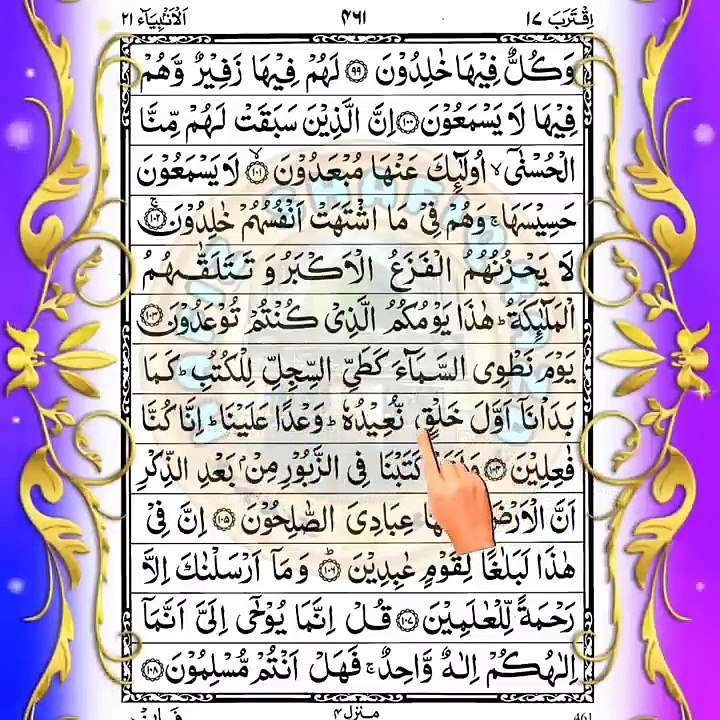 اِقْتَرَبَ ١٧ ٤٦١ اَلْاَنْۢبِيَآء ٢١
وَكُلٌّ فِيْهَا خٰلِدُوْنَ ۝٩٩ لَهُمْ فِيْهَا زَفِيْرٌ وَّهُمْ
فِيْهَا لَا يَسْمَعُوْنَ ۝١٠٠ اِنَّ الَّذِيْنَ سَبَقَتْ لَهُمْ مِّنَّا
الْحُسْنٰٓى ۙ اُولٰٓئِكَ عَنْهَا مُبْعَدُوْنَ ۝١٠١ لَا يَسْمَعُوْنَ
حَسِيْسَهَا ۚ وَهُمْ فِيْ مَا اشْتَهَتْ اَنْفُسُهُمْ خٰلِدُوْنَ ۝١٠٢
لَا يَحْزُنُهُمُ الْفَزَعُ الْاَكْبَرُ وَ تَتَلَقّٰىهُمُ
الْمَلٰٓئِكَةُ ؕ هٰذَا يَوْمُكُمُ الَّذِيْ كُنْتُمْ تُوْعَدُوْنَ ۝١٠٣
يَوْمَ نَطْوِى السَّمَآءَ كَطَيِّ السِّجِلِّ لِلْكُتُبِ ؕ كَمَا
بَدَاْنَآ اَوَّلَ خَلْقٍ نُّعِيْدُهٗ ؕ وَعْدًا عَلَيْنَا ؕ اِنَّا كُنَّا
فٰعِلِيْنَ ۝١٠٤ كَتَبْنَا فِى الزَّبُوْرِ مِنْۢ بَعْدِ الذِّكْرِ
اَنَّ الْاَرْضَ عِبَادِيَ الصّٰلِحُوْنَ ۝١٠٥ اِنَّ فِيْ
هٰذَا لَبَلٰغًا لِّقَوْمٍ عٰبِدِيْنَ ۝١٠٦ وَمَآ اَرْسَلْنٰكَ اِلَّا
رَحْمَةً لِّلْعٰلَمِيْنَ ۝١٠٧ قُلْ اِنَّمَا يُوْحٰٓى اِلَيَّ اَنَّمَآ
اِلٰهُكُمْ اِلٰهٌ وَّاحِدٌ ۚ فَهَلْ اَنْتُمْ مُّسْلِمُوْنَ ۝١٠٨
منزل ٤ 461